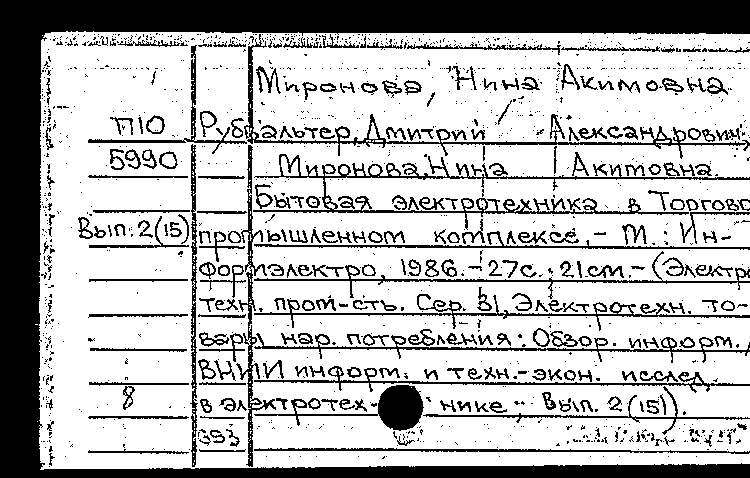 Миронова, Нина Акимовна
П10 Рубвальтер, Дмитрий Александрович,
5990 Миронова, Нина Акимовна.
Бытовая электротехника в Торгово
Вып. 2(15) промышленном комплексе. – М. : Ин-
формэлектро, 1986. – 27с. ; 21см. – (Электро
техн. пром-сть. Сер. 31, Электротехн. то-
вары нар. потребления : Обзор. информ. /
ВНИИ информ. и техн.-экон. исслед.
8 в электротех- нике ; Вып. 2 (15)).